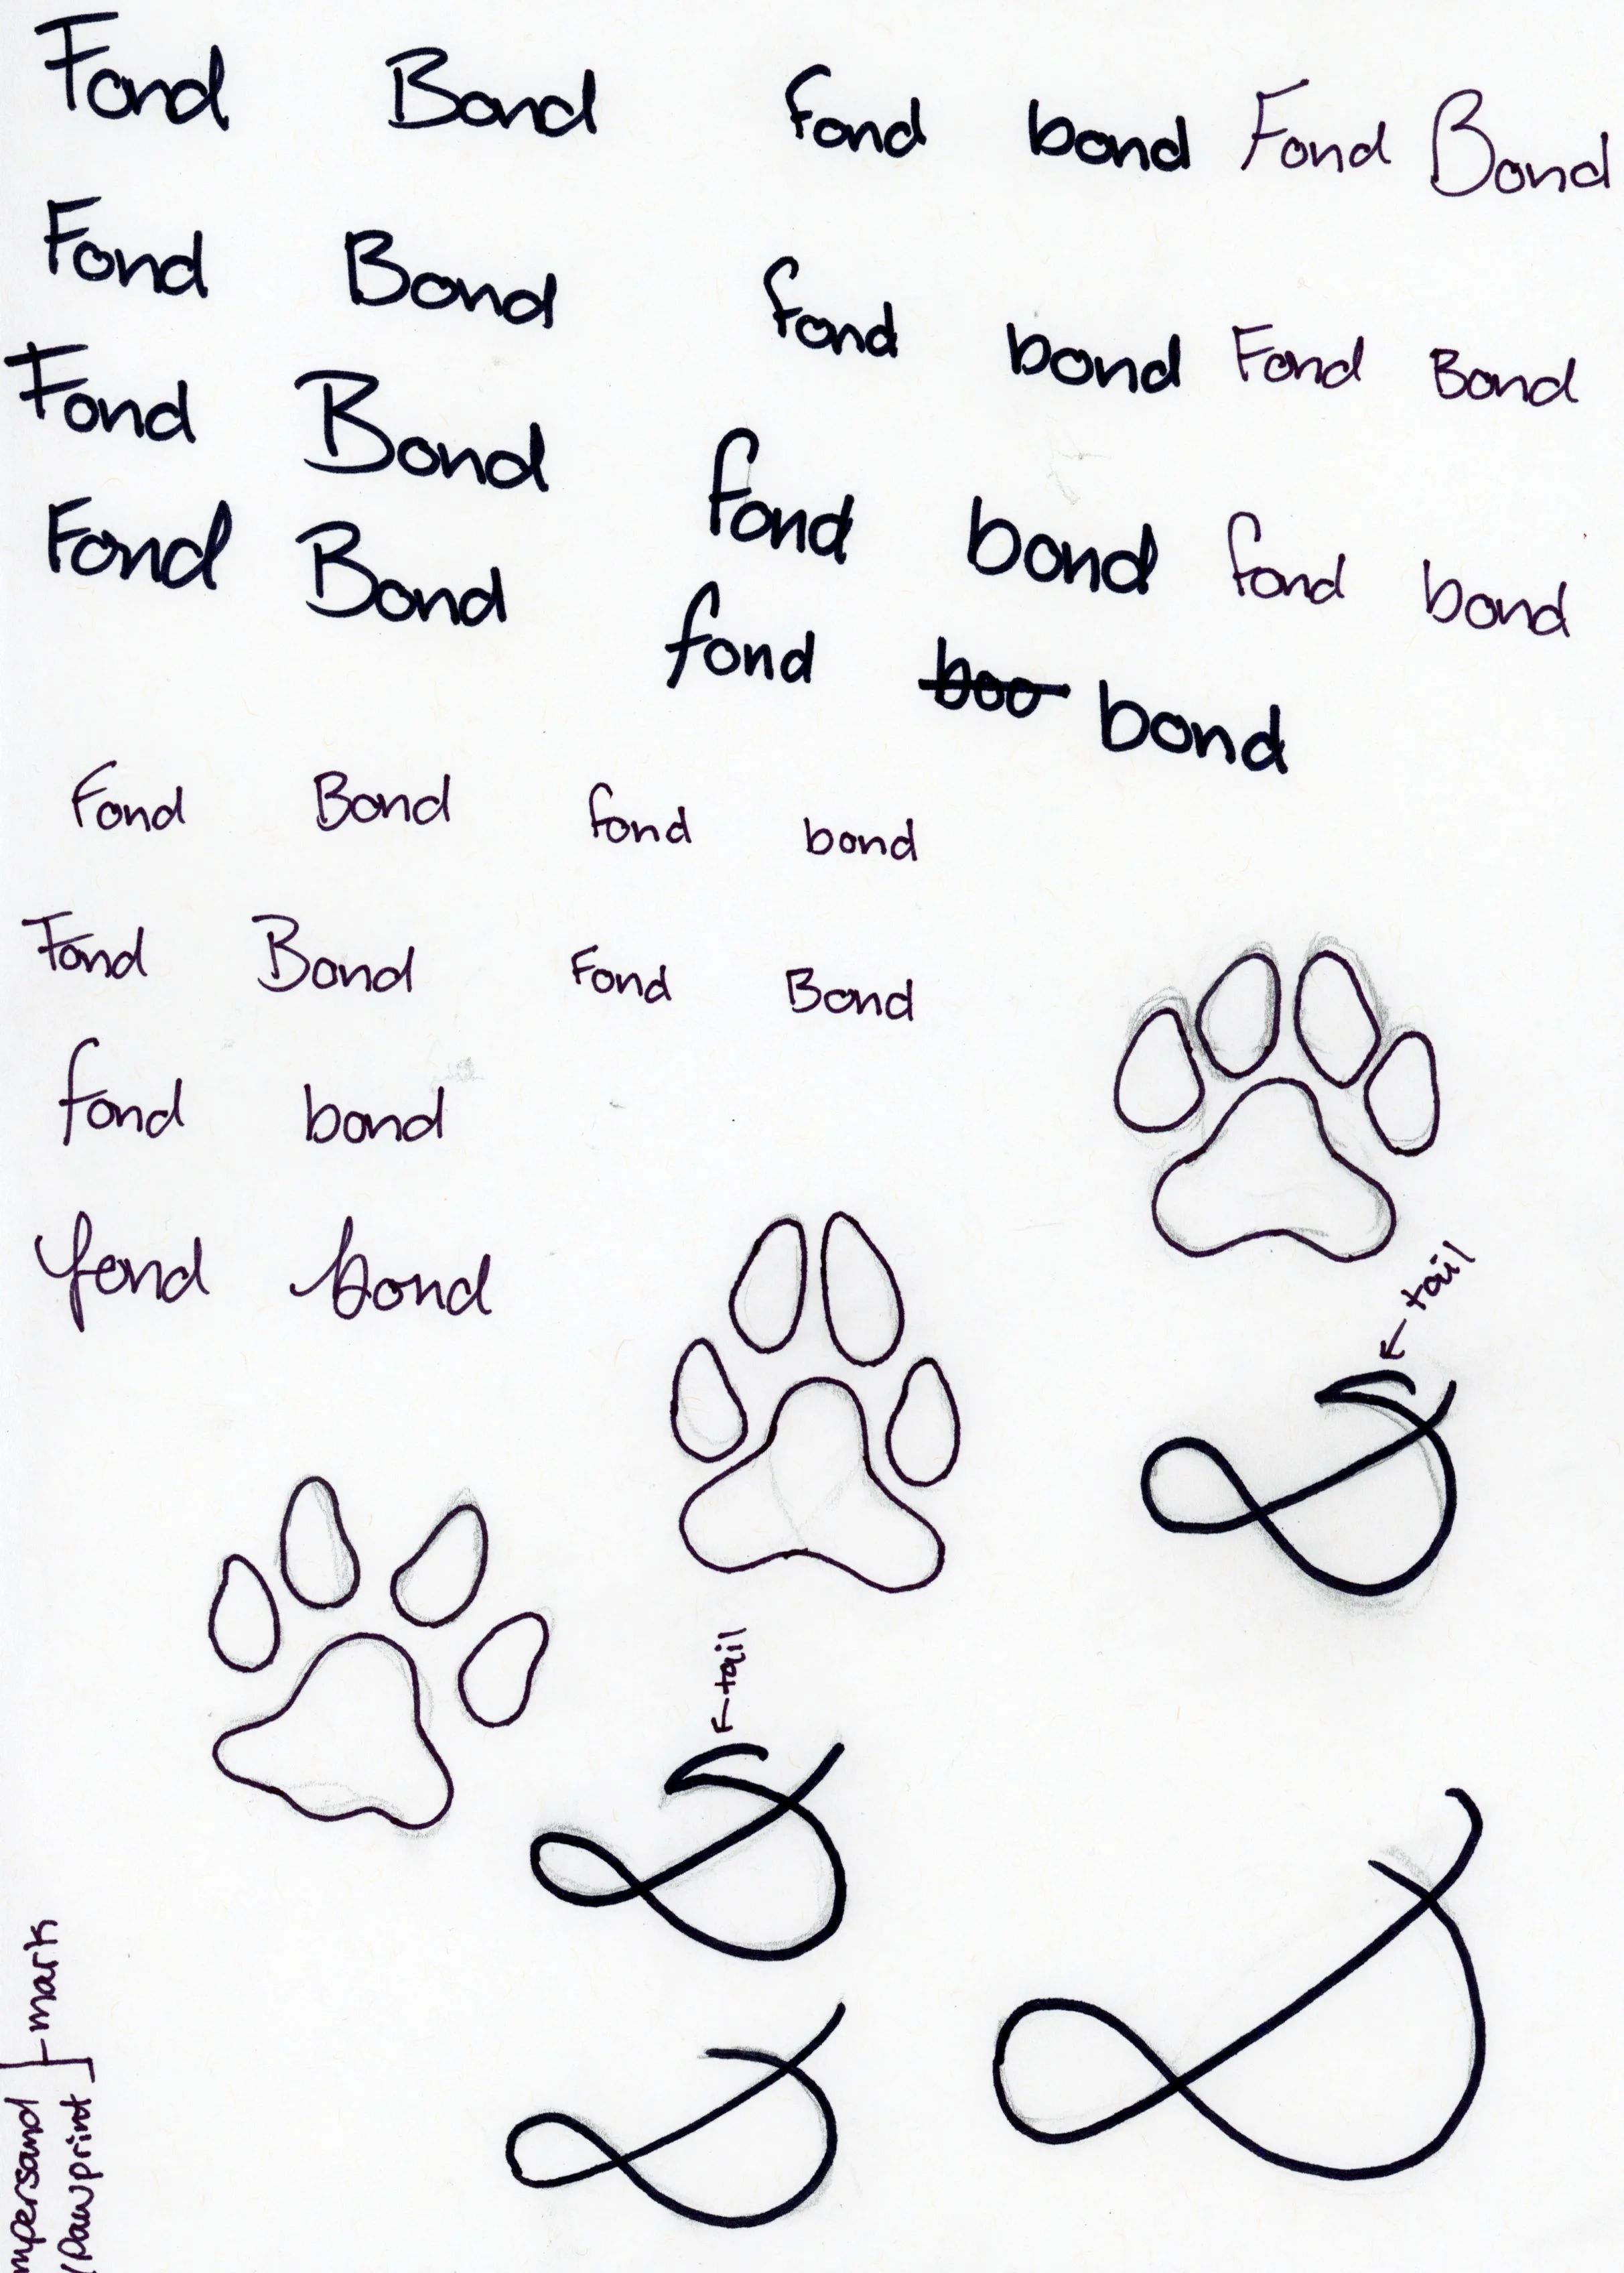 Fond Bond fond bond Fond Bond
Fond Bond fond bond Fond Bond
Fond Bond fond bond fond bond
Fond Bond fond boo bond
Fond Bond fond bond
Fond Bond Fond Bond
fond bond
fond bond
tail
&
tail
&
&
&
mpersand
/Pawprint
mark